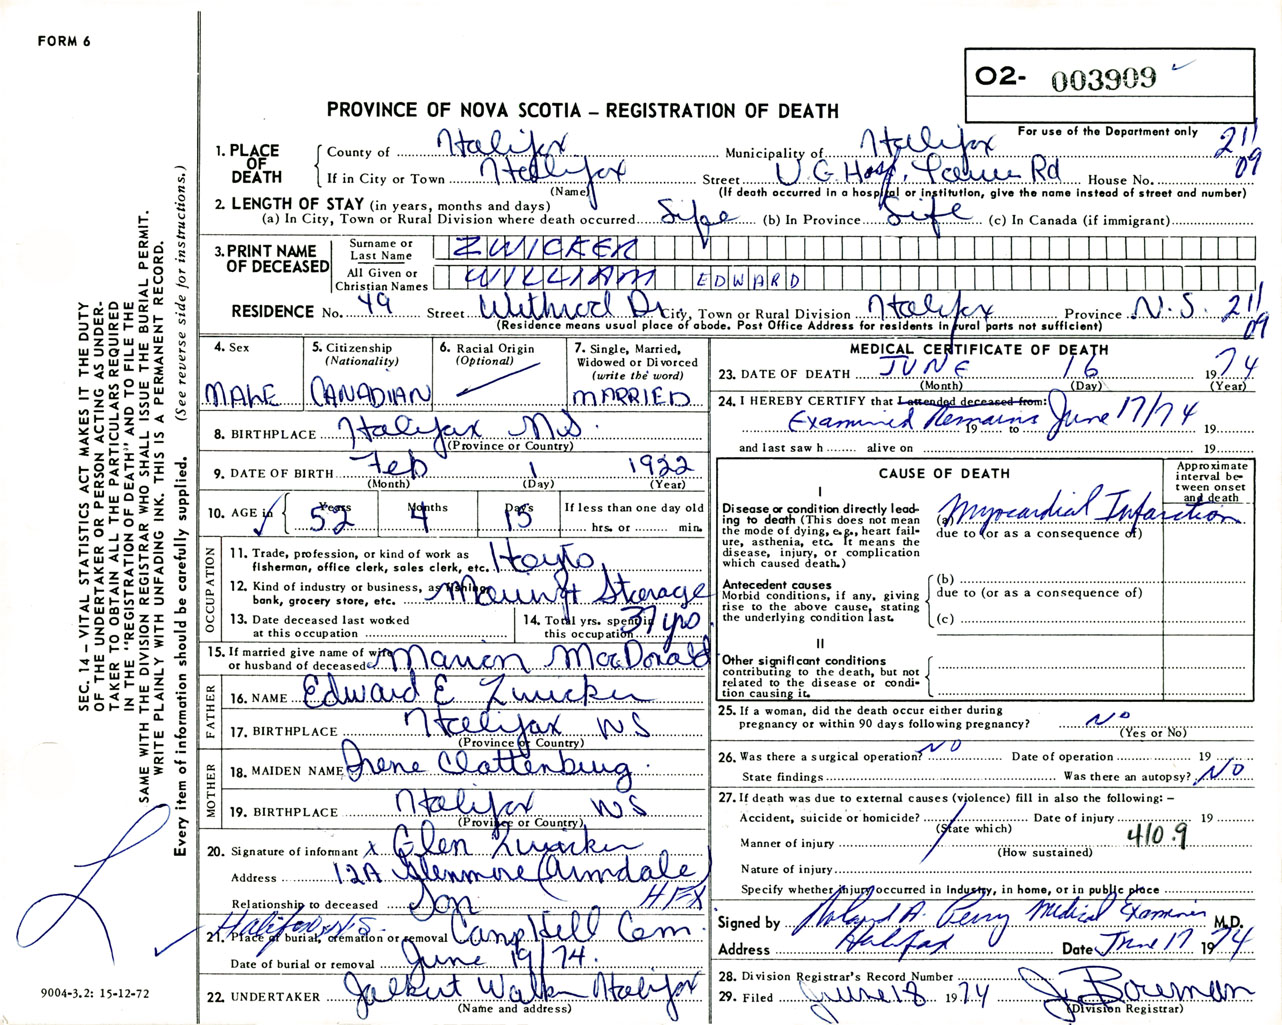 FORM 6
O2- 003909
PROVINCE OF NOVA SCOTIA – REGISTRATION OF DEATH
For use of the Department only
211
09
1. PLACE OF DEATH
County of Halifax Municipality of Halifax
If in City or Town Halifax Street V.G. Hosp. Rd House No.
(Name) (If death occurred in a hospital or institution, give the name instead of street and number)
2. LENGTH OF STAY (in years, months and days)
(a) In City, Town or Rural Division where death occurred Life (b) In Province Life (c) In Canada (if immigrant)
3. PRINT NAME OF DECEASED
Surname or Last Name ZWICKER
All Given or Christian Names WILLIAM EDWARD
RESIDENCE No. 49 Street Withrod Dr City, Town or Rural Division Halifax Province N.S. 211
09
(Residence means usual place of abode. Post Office Address for residents in rural parts not sufficient)
4. Sex
MALE
5. Citizenship
(Nationality)
CANADIAN
6. Racial Origin
(Optional)
7. Single, Married, Widowed or Divorced
(write the word)
MARRIED
8. BIRTHPLACE Halifax N.S.
(Province or Country)
9. DATE OF BIRTH Feb 1 1922
(Month) (Day) (Year)
10. AGE in Years 52 Months 4 Days 15 If less than one day old
hrs. or min.
OCCUPATION
11. Trade, profession, or kind of work as
fisherman, office clerk, sales clerk, etc.
12. Kind of industry or business, as fishing,
bank, grocery store, etc. Storage
13. Date deceased last worked
at this occupation
14. Total yrs. spent in
this occupation 37 yrs.
15. If married give name of wife
or husband of deceased Marion MacDonald
FATHER
16. NAME Edward E Zwicker
17. BIRTHPLACE Halifax NS
(Province or Country)
MOTHER
18. MAIDEN NAME Irene Clattenburg
19. BIRTHPLACE Halifax NS
(Province or Country)
20. Signature of informant x Glen Zwicker
Address 12A Glenmore (Armdale)
HFX
Relationship to deceased Son
Halifax N.S.
21. Place of burial, cremation or removal Camp Hill Cem.
Date of burial or removal June 19/74.
22. UNDERTAKER Halifax
(Name and address)
MEDICAL CERTIFICATE OF DEATH
23. DATE OF DEATH JUNE 16 1974
(Month) (Day) (Year)
24. I HEREBY CERTIFY that I attended deceased from:
Examined Remains June 17/74 19 to 19
and last saw h alive on 19
CAUSE OF DEATH
Approximate interval between onset and death
I
Disease or condition directly leading to death (This does not mean the mode of dying, e.g., heart failure, asthenia, etc. It means the disease, injury, or complication which caused death.)
(a) Myocardial Infarction
due to (or as a consequence of)
Antecedent causes
Morbid conditions, if any, giving rise to the above cause, stating the underlying condition last.
(b)
due to (or as a consequence of)
(c)
II
Other significant conditions
contributing to the death, but not related to the disease or condition causing it.
25. If a woman, did the death occur either during
pregnancy or within 90 days following pregnancy? NO
(Yes or No)
26. Was there a surgical operation? NO Date of operation 19
State findings Was there an autopsy? NO
27. If death was due to external causes (violence) fill in also the following: –
Accident, suicide or homicide? Date of injury 19
(State which)
410.9
Manner of injury
(How sustained)
Nature of injury
Specify whether injury occurred in Industry, in home, or in public place
Signed by Roland A. Perry Medical Examiner M.D.
Address Halifax Date June 17 1974
28. Division Registrar's Record Number
29. Filed June 18 1974 J. Bowman
(Division Registrar)
SEC. 14 – VITAL STATISTICS ACT MAKES IT THE DUTY
OF THE UNDERTAKER OR PERSON ACTING AS UNDER-
TAKER TO OBTAIN ALL THE PARTICULARS REQUIRED
IN THE "REGISTRATION OF DEATH" AND TO FILE THE
SAME WITH THE DIVISION REGISTRAR WHO SHALL ISSUE THE BURIAL PERMIT.
WRITE PLAINLY WITH UNFADING INK. THIS IS A PERMANENT RECORD.
Every item of information should be carefully supplied. (See reverse side for instructions.)
9004-3.2: 15-12-72